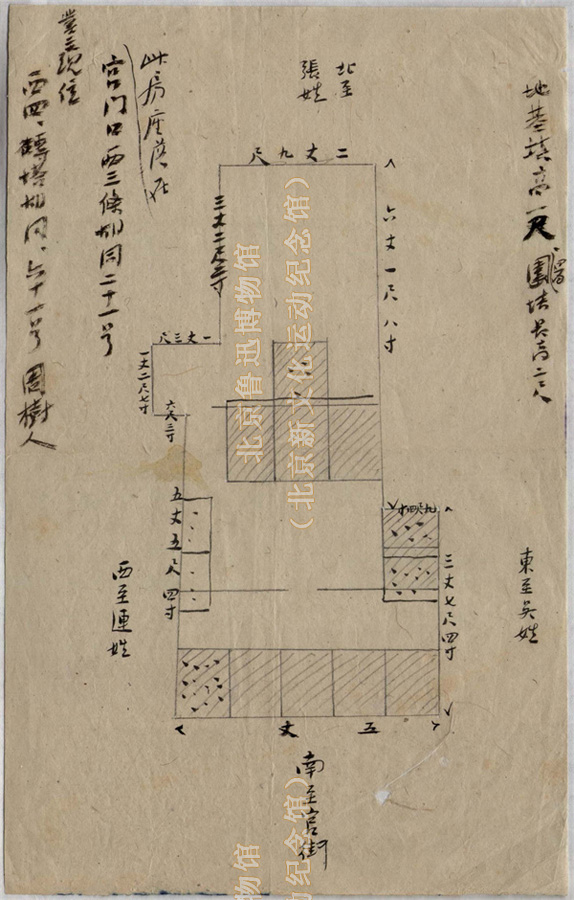 地基填高一尺
圍墻
加高二尺
北至
張姓
二丈九尺
六丈一尺八寸
三丈二尺三寸
一丈三尺
一丈二尺七寸
六尺三寸
五丈五尺四寸
九尺四寸
三丈七尺四寸
五丈
東至吳姓
西至連姓
南至官街
此房座落在
宮门口西三條胡同二十一号
業主現住
西四、磚塔胡同、六十一号 周樹人
北京鲁迅博物馆
（北京新文化运动纪念馆）
物馆
动纪念馆）